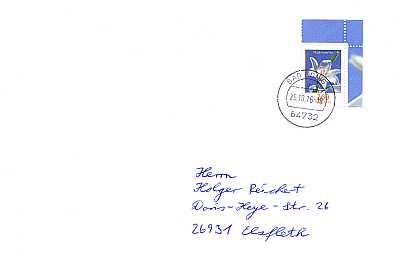 BAD KÖNIG
25.10.16-18
64732
Herrn
Holger Reichert
Doris-Heye-Str. 26
26931 Elsfleth